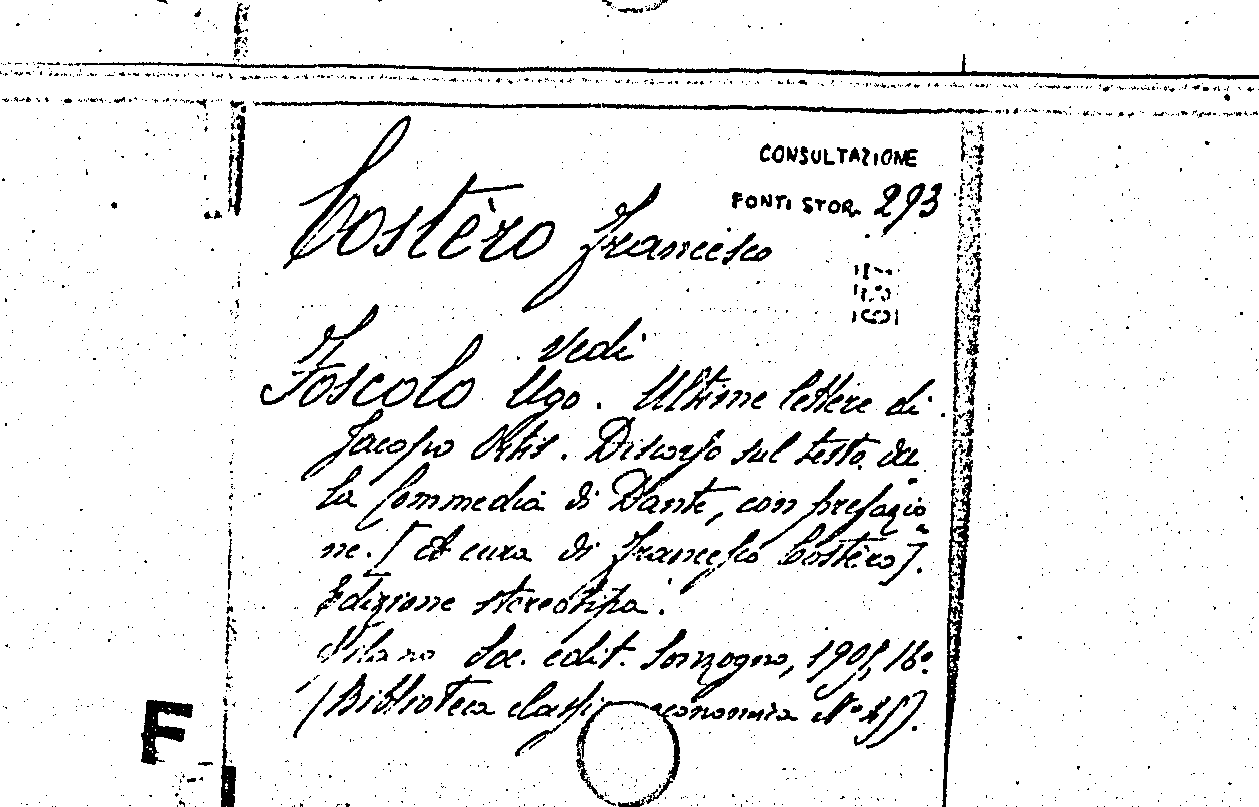 CONSULTAZIONE
FONTI STOR. 293
Costèro Francesco
Vedi
Foscolo Ugo. Ultime lettere di
Jacopo Ortis. Discorso sul testo del
la Commedia di Dante, con prefazio
ne. [A cura di Francesco Costèro].
Edizione stereotipa.
Milano Soc. edit. Sonzogno, 16°.
(Biblioteca classica economica N°
F